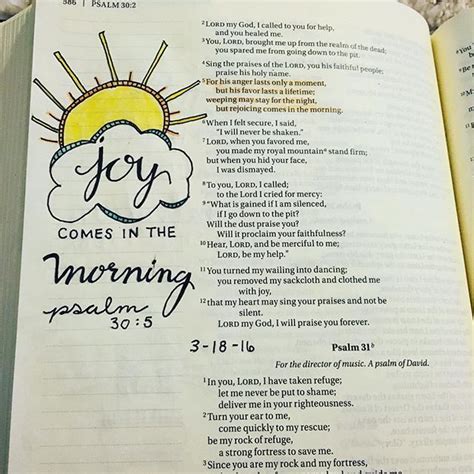 586 | PSALM 30:2
joy
COMES IN THE
morning
psalm
30:5
²LORD my God, I called to you for help,
and you healed me.
³You, LORD, brought me up from the realm of the dead;
you spared me from going down to the pit.
⁴Sing the praises of the LORD, you his faithful people;
praise his holy name.
⁵For his anger lasts only a moment,
but his favor lasts a lifetime;
weeping may stay for the night,
but rejoicing comes in the morning.
⁶When I felt secure, I said,
"I will never be shaken."
⁷LORD, when you favored me,
you made my royal mountainᵃ stand firm;
but when you hid your face,
I was dismayed.
⁸To you, LORD, I called;
to the Lord I cried for mercy:
⁹"What is gained if I am silenced,
if I go down to the pit?
Will the dust praise you?
Will it proclaim your faithfulness?
¹⁰Hear, LORD, and be merciful to me;
LORD, be my help."
¹¹You turned my wailing into dancing;
you removed my sackcloth and clothed me
with joy,
¹²that my heart may sing your praises and not be
silent.
LORD my God, I will praise you forever.
3-18-16
Psalm 31ᵇ
For the director of music. A psalm of David.
¹In you, LORD, I have taken refuge;
let me never be put to shame;
deliver me in your righteousness.
²Turn your ear to me,
come quickly to my rescue;
be my rock of refuge,
a strong fortress to save me.
³Since you are my rock and my fortress,